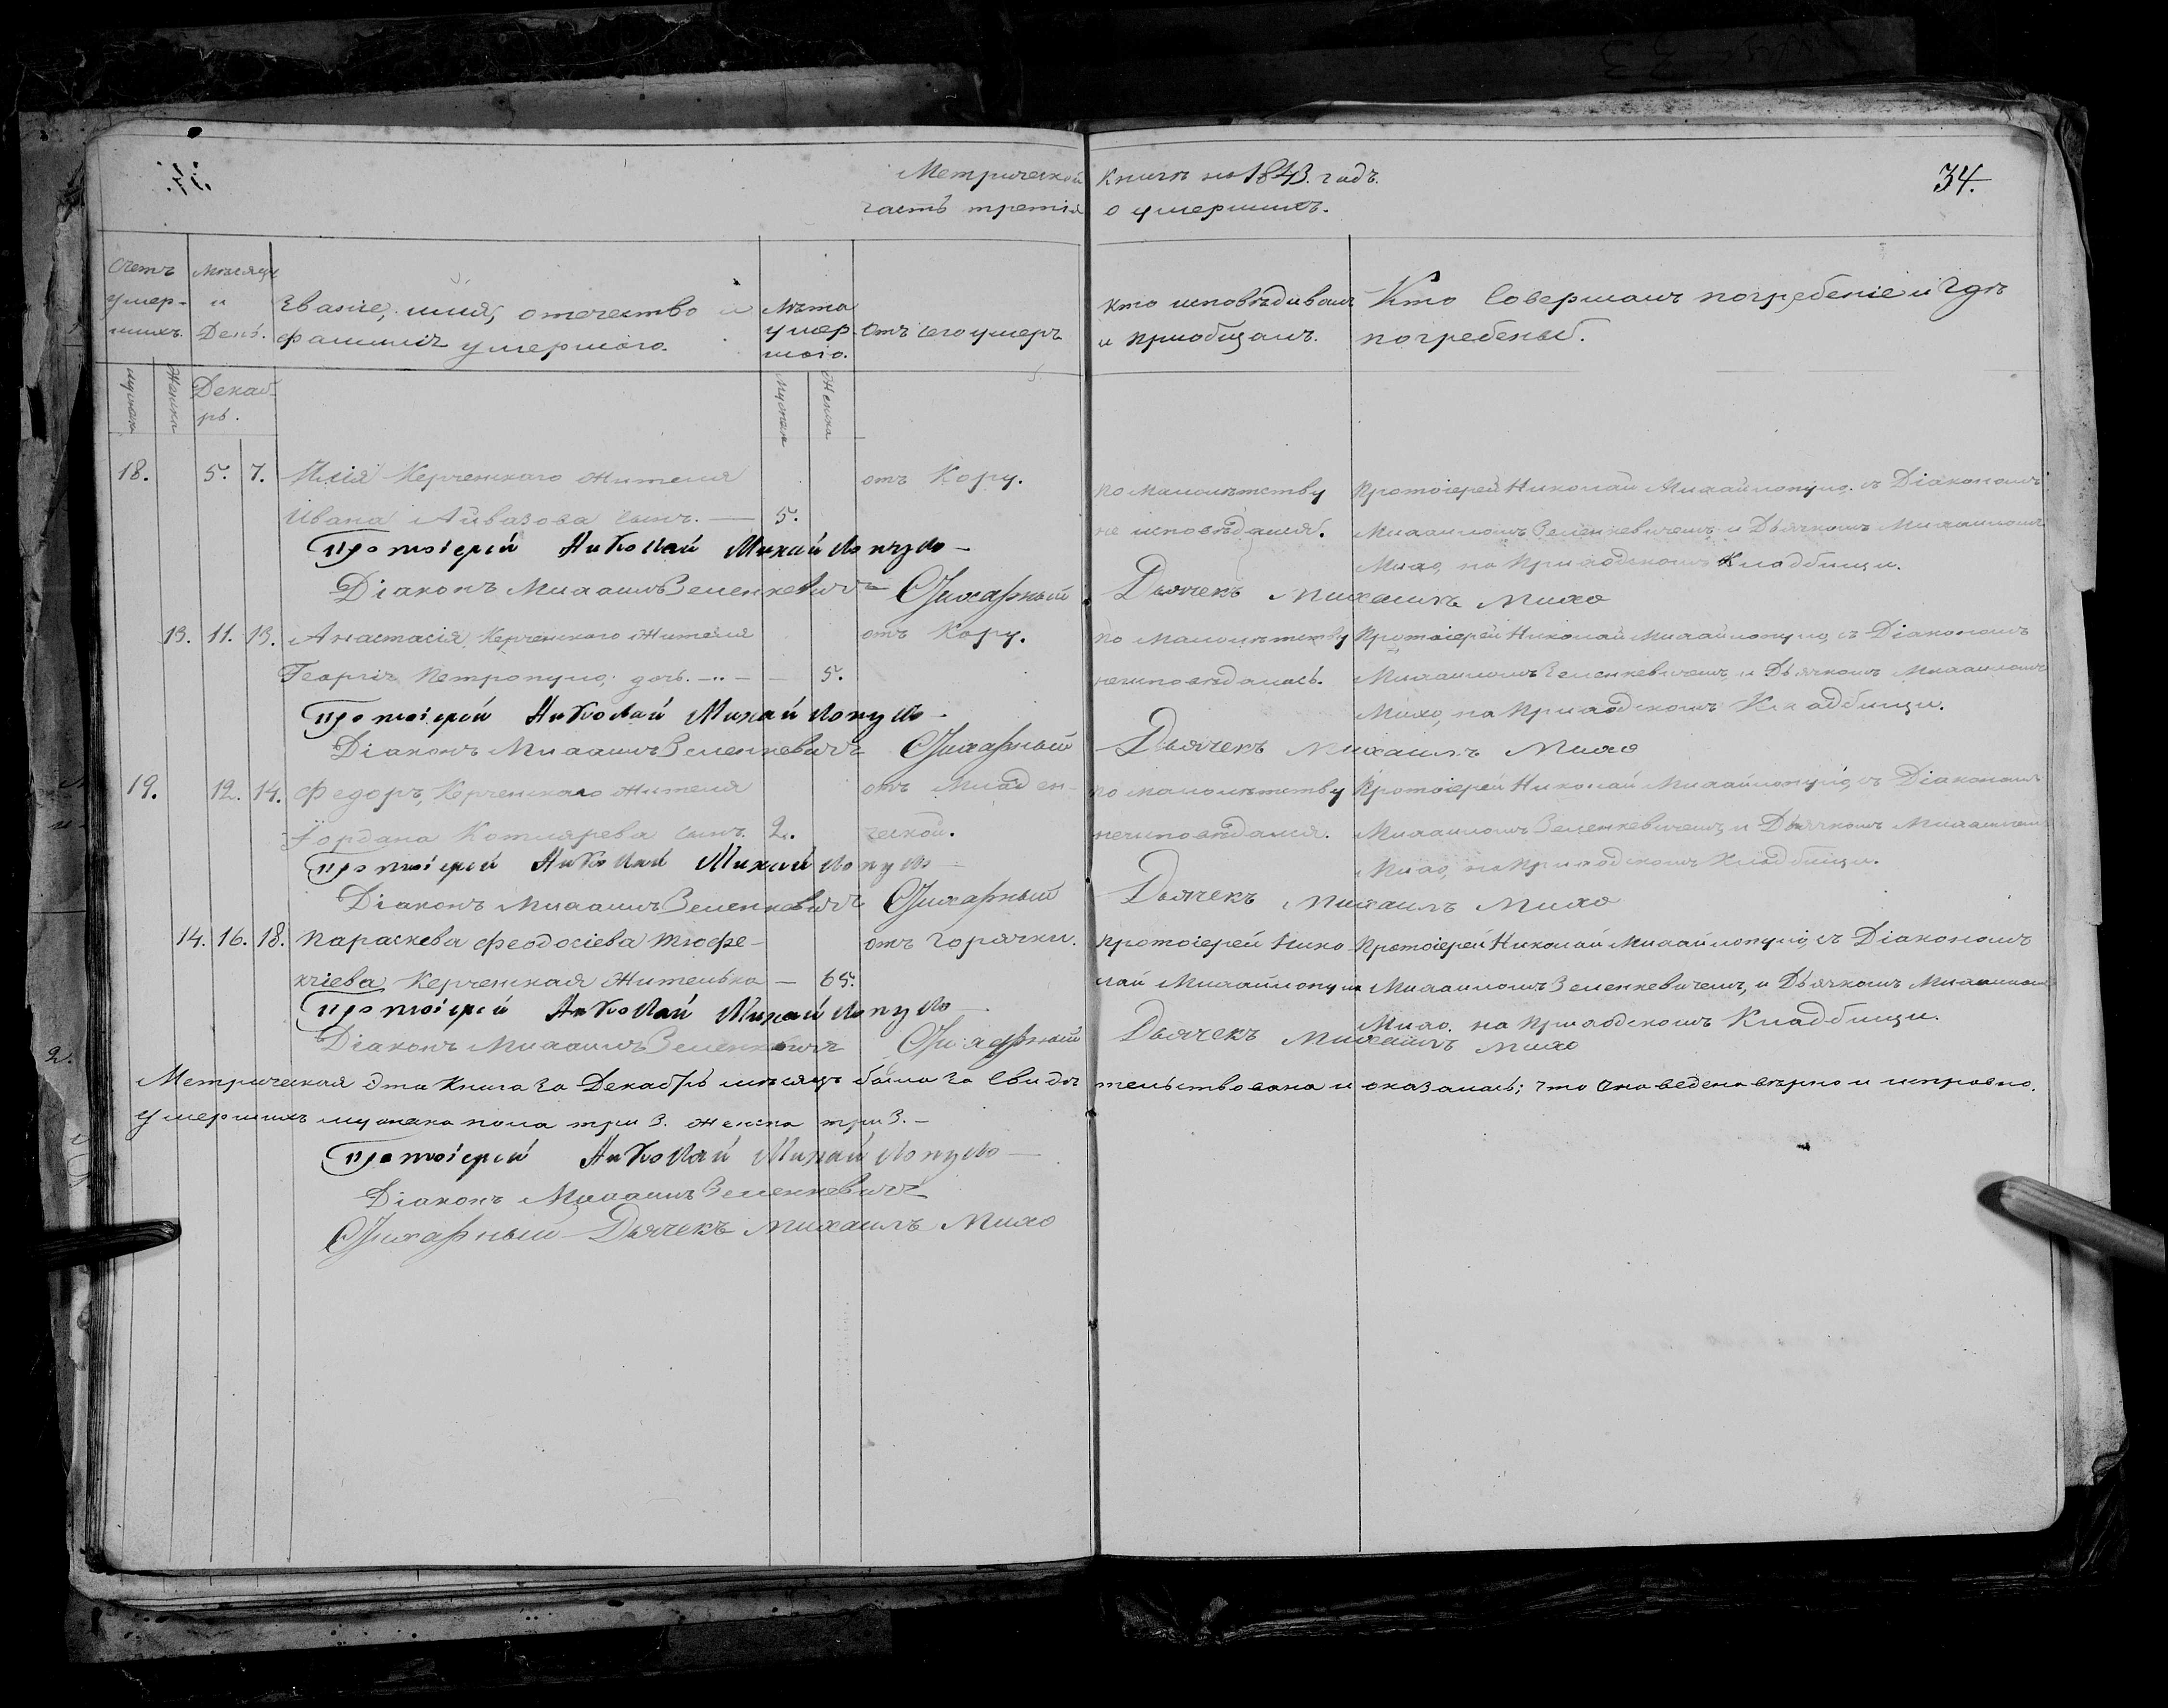 34.
Метрической Книги на 1843. годъ.
часть третія о умершихъ.
Счетъ умер-шихъ.
Мѣсяцъ и День.
Званіе, имя, отечество и фамилія умершаго.
Лѣта умершаго.
Отъ чего умеръ
Кто исповѣдивалъ и приобщалъ.
Кто совершалъ погребеніе и гдѣ погребены.
мужска
Женска
Декаб-рь.
Мужска
Женска
18. 5. 7. Илія Керченскаго Жителя отъ Кору. по малолѣтству Протоіерей Николай Михайлопуло, съ Діакономъ
Ивана Айвазова сынъ. — 5. не исповѣдался. Михаиломъ Зеленкевичемъ, и Дьячкомъ Михаиломъ
Михо, на Приходскомъ Кладбищи.
Протоіерей Николай Михайлопуло
Діаконъ Михаилъ Зеленкевичъ Дьячекъ Михаилъ Михо
13. 11. 13. Анастасія, Керченскаго Жителя отъ Кору. по малолѣтству Протоіерей Николай Михайлопуло, съ Діакономъ
Георгія Петропуло, дочь. — 5. неисповѣдалась. Михаиломъ Зеленкевичемъ, и Дьячкомъ Михаиломъ
Михо, на Приходскомъ Кладбищи.
Протоіерей Николай Михайлопуло
Діаконъ Михаилъ Зеленкевичъ Дьячекъ Михаилъ Михо
19. 12. 14. Федоръ, Керченскаго Жителя отъ Младен- по малолѣтству Протоіерей Николай Михайлопуло, съ Діакономъ
Іордана Котлярева сынъ. 2. ческой. неисповѣдался. Михаиломъ Зеленкевичемъ, и Дьячкомъ Михаиломъ
Михо, на Приходскомъ Кладбищи.
Протоіерей Николай Михайлопуло
Діаконъ Михаилъ Зеленкевичъ Дьячекъ Михаилъ Михо
14. 16. 18. Параскева Феодосіева Тюфе- отъ горячки. Протоіерей Нико Протоіерей Николай Михайлопуло, съ Діакономъ
кчіева, Керченская Жителька — 65. лай Михайлопуло Михаиломъ Зеленкевичемъ, и Дьячкомъ Михаиломъ
Михо, на Приходскомъ Кладбищи.
Протоіерей Николай Михайлопуло
Діаконъ Михаилъ Зеленкевичъ Дьячекъ Михаилъ Михо
Метрическая эта Книга за Декабрь мѣсяцъ была за свидѣтельствована и оказалась; что она ведена вѣрно и исправно.
Умершихъ мужска пола три 3. женска три 3. —
Протоіерей Николай Михайлопуло
Діаконъ Михаилъ Зеленкевичъ
Дьячекъ Михаилъ Михо